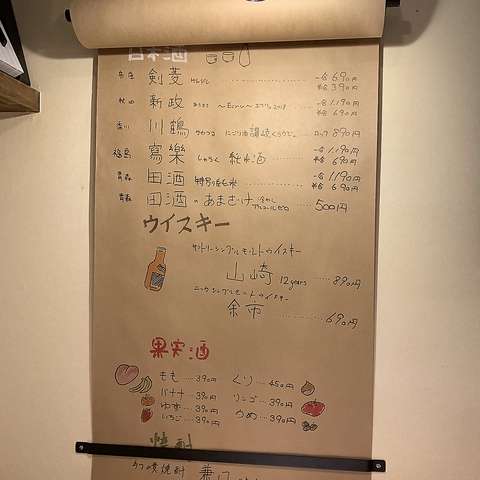 日本酒
兵庫 剣菱 けんびし ……… 一合 690円
半合 390円
秋田 新政 あらまさ ～Ecru～ 2018 …… 一合 1,190円
半合 690円
香川 川鶴 かわつる にごり酒 讃岐くらうでぃ … ロック 890円
福島 寫樂 しゃらく 純米酒 ……… 一合 1,190円
半合 690円
青森 田酒 特別純米 ……… 一合 1,190円
半合 690円
青森 田酒 の あまざけ 冷やし アルコールゼロ …… 500円
ウイスキー
サントリーシングルモルトウイスキー
山崎 12years …… 890円
ニッカシングルモルトウイスキー
余市 ……… 690円
果実酒
もも …… 390円
バナナ …… 390円
ゆず …… 390円
いちご …… 390円
くり …… 450円
リンゴ …… 390円
うめ …… 390円
焼酎